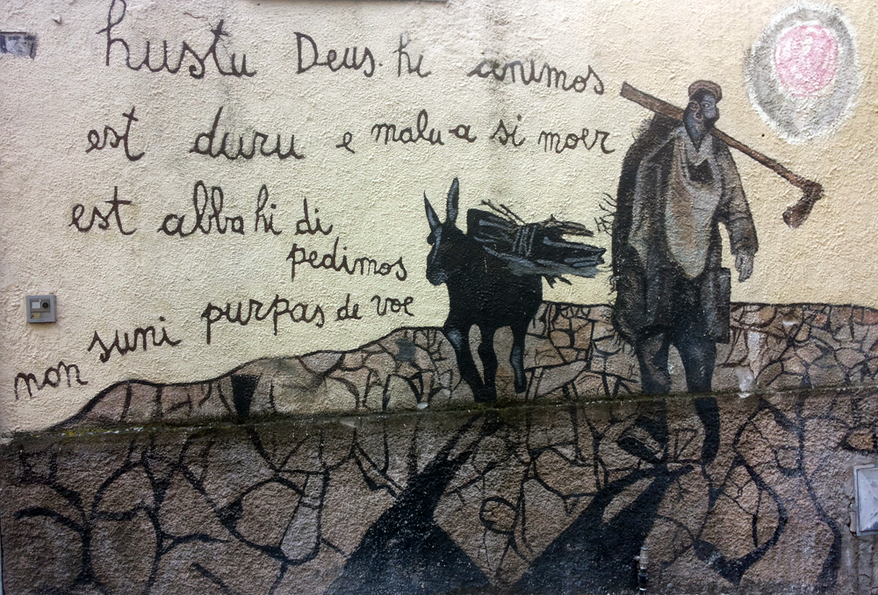 hustu Deus. hi animos
est duru e malu a si moer
est abba hi di
pedimos
non suni purpas de voe